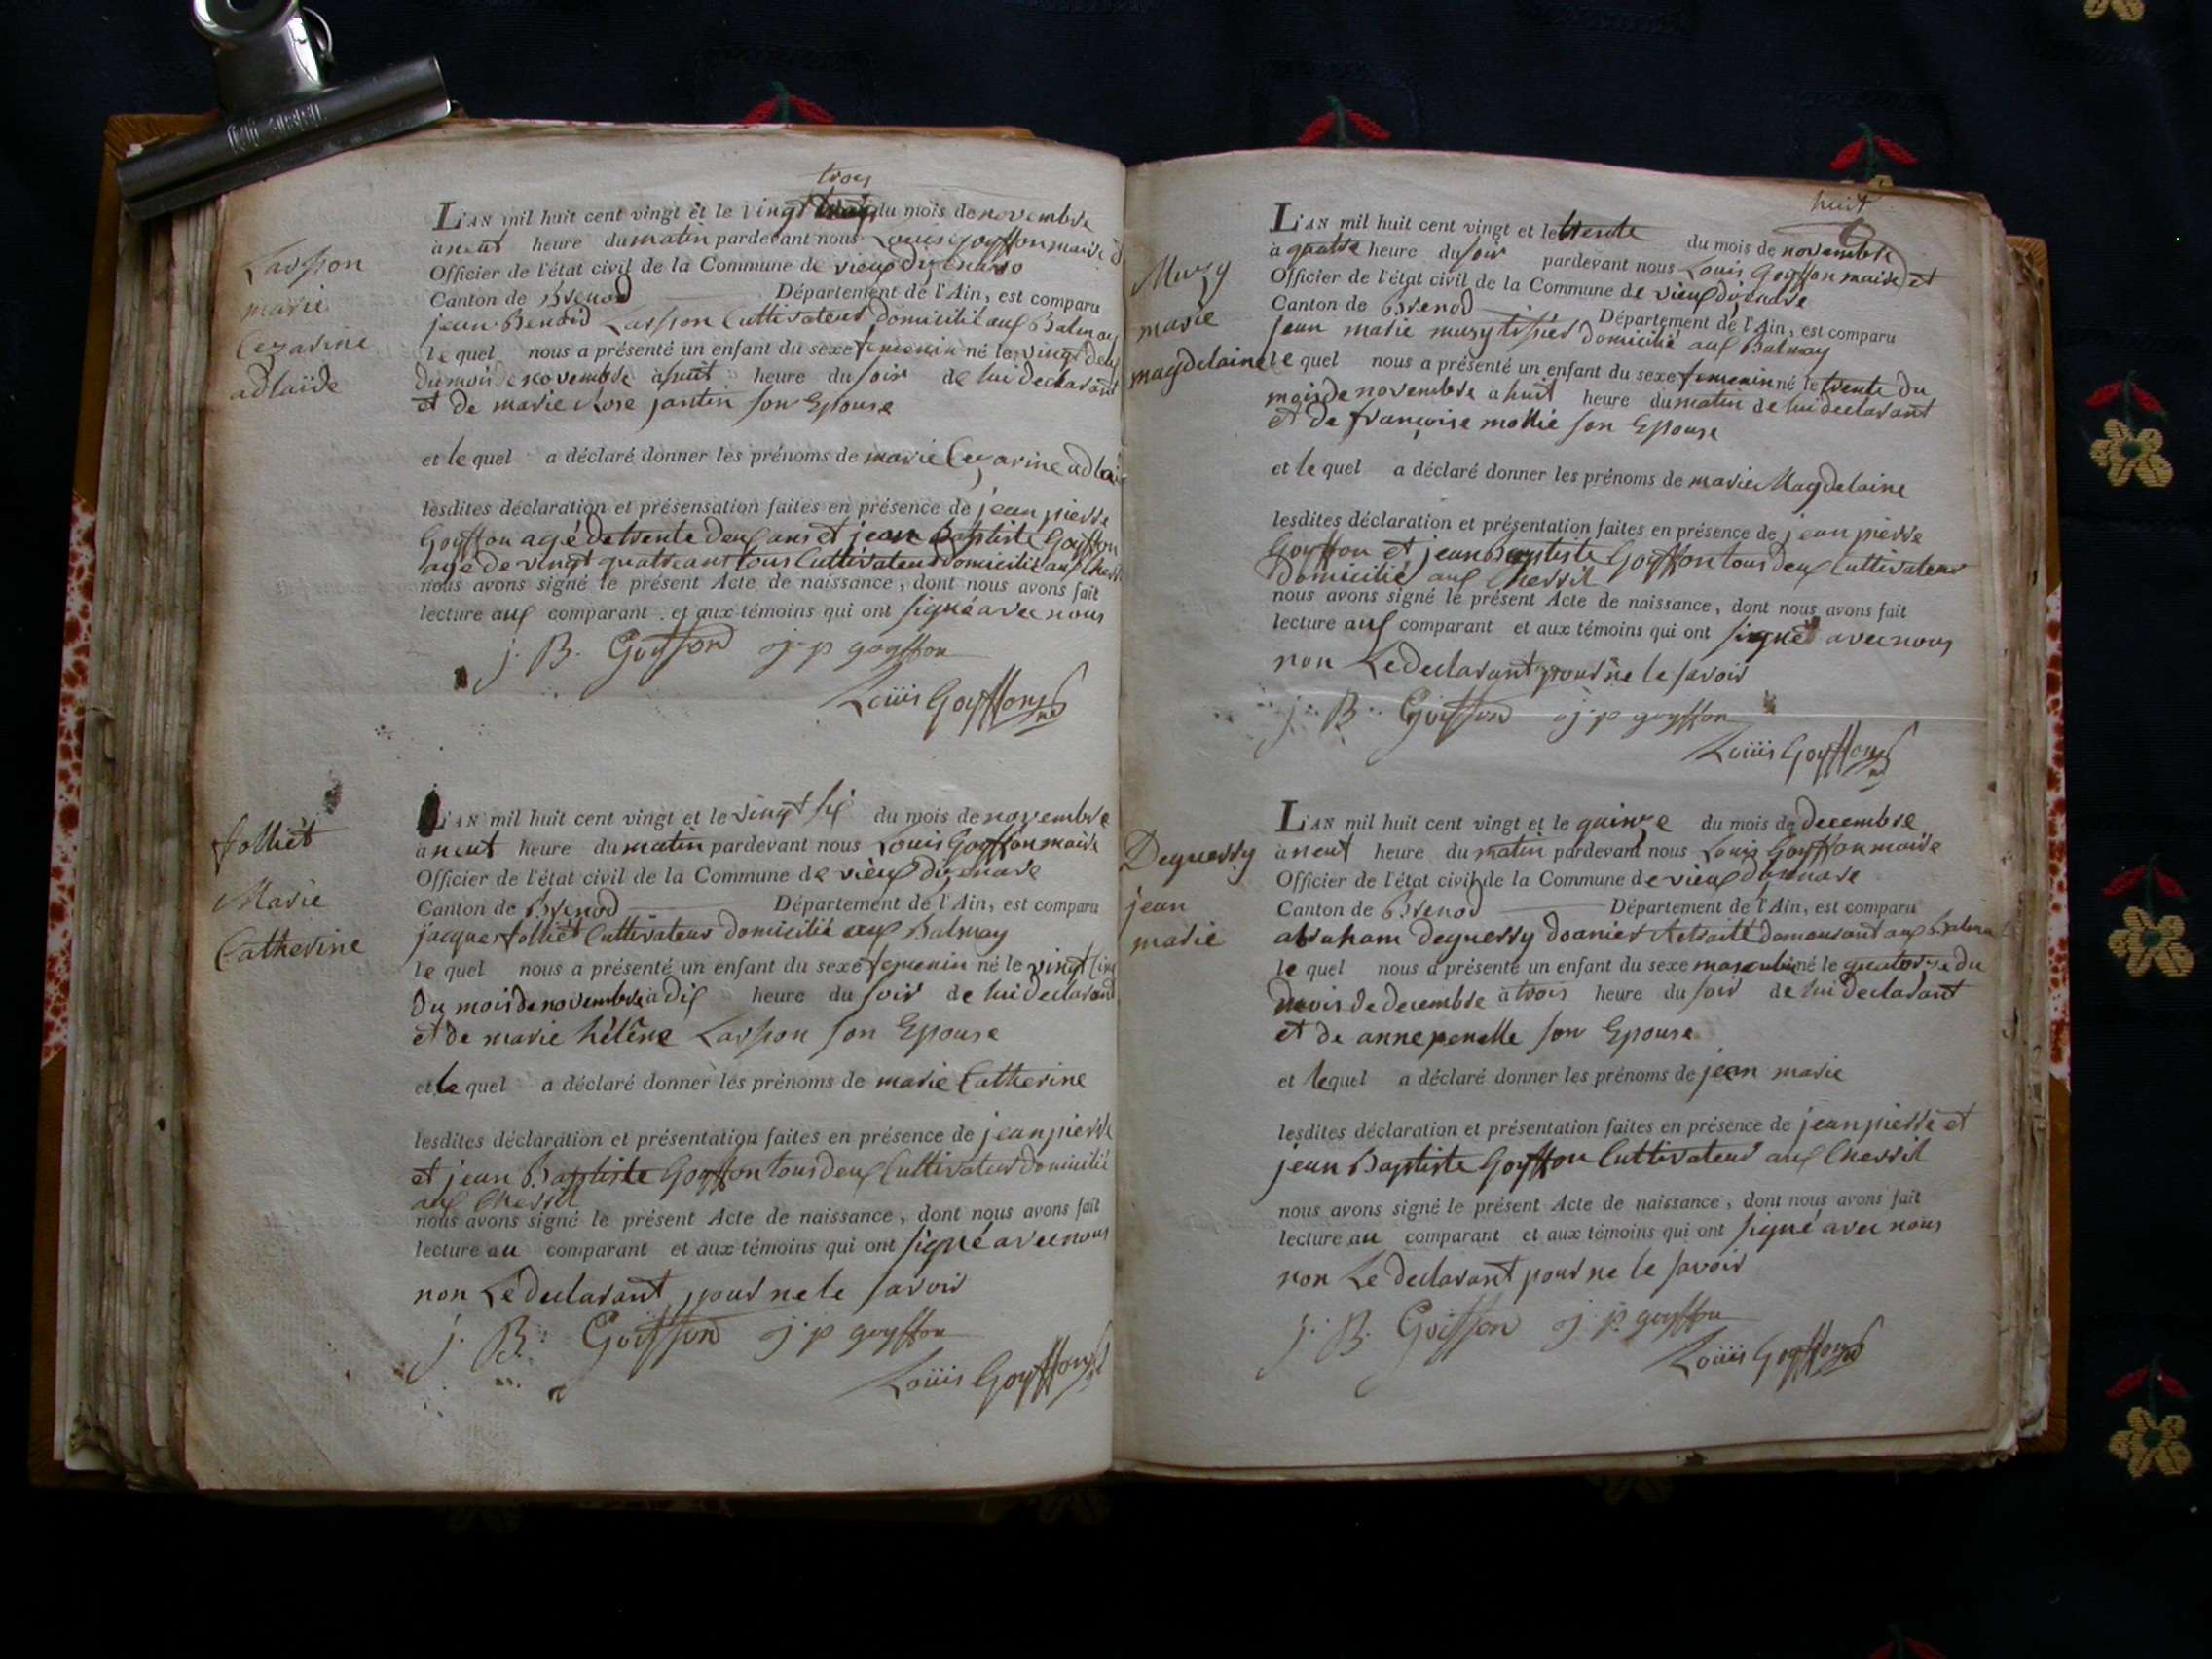 trois
L'AN mil huit cent vingt et le vingt trois du mois de novembre
à neuf heure du matin pardevant nous Louis Goyffon maire
Officier de l'état civil de la Commune de vieux dizenave
Canton de Brenod Département de l'Ain, est comparu
jean Benoid Lasson Cultivateur domicilié aux Balmay
le quel nous a présenté un enfant du sexe femenin né le vingt deux
du mois de novembre à huit heure du soir de lui declarant
et de marie Rose jantin son Epouse
et le quel a déclaré donner les prénoms de marie Cezarine adlai
lesdites déclaration et présensation faites en présence de jean pierre
Goyffon agé de trente deux ans et jean Baptiste Goyffon
agé de vingt quatre ans tous Cultivateur domicilié aux Cherril
nous avons signé le présent Acte de naissance, dont nous avons fait
lecture aux comparant et aux témoins qui ont signé avec nous
j. B. Goiffon j. p goyffon
Louis Goyffon
Lasson
marie
Cezarine
adlaïde
L'AN mil huit cent vingt et le vingt six du mois de novembre
à neuf heure du matin pardevant nous Louis Goyffon maire
Officier de l'état civil de la Commune de vieux dizenave
Canton de Brenod Département de l'Ain, est comparu
jacque folliet Cultivateur domicilié aux Balmay
le quel nous a présenté un enfant du sexe femenin né le vingt cinq
du mois de novembre à dix heure du soir de lui declarant
et de marie hélêne Lasson son Epouse
et le quel a déclaré donner les prénoms de marie Catherine
lesdites déclaration et présentation faites en présence de jean pierre
et jean Baptiste Goyffon tous deux Cultivateur domicilié
aux Cherril
nous avons signé le présent Acte de naissance, dont nous avons fait
lecture au comparant et aux témoins qui ont signé avec nous
non Le declarant pour ne le savoir
j. B. Goiffon j. p goyffon
Louis Goyffon
folliet
Marie
Catherine
huit
L'AN mil huit cent vingt et le trente du mois de novembre
à quatre heure du soir pardevant nous Louis Goyffon maire et
Officier de l'état civil de la Commune de vieux dizenave
Canton de Brenod Département de l'Ain, est comparu
jean marie muzy tissier domicilié aux Balmay
le quel nous a présenté un enfant du sexe femenin né le trente du
mois de novembre à huit heure du matin de lui declarant
et de françoise mollié son Epouse
et le quel a déclaré donner les prénoms de marie Magdelaine
lesdites déclaration et présentation faites en présence de jean pierre
Goyffon et jean Baptiste Goyffon tous deux Cultivateur
domicilié aux Cherril
nous avons signé le présent Acte de naissance, dont nous avons fait
lecture aux comparant et aux témoins qui ont signé avec nous
non Le declarant pour ne le savoir
j. B. Goiffon j. p goyffon
Louis Goyffon
Muzy
marie
magdelaine
L'AN mil huit cent vingt et le quinze du mois de decembre
à neuf heure du matin pardevant nous Louis Goyffon maire
Officier de l'état civil de la Commune de vieux dizenave
Canton de Brenod Département de l'Ain, est comparu
abraham Deguerry doanier Retraité demeurant aux Balmay
le quel nous a présenté un enfant du sexe masculin né le quatorze du
mois de decembre à trois heure du soir de lui declarant
et de anne penelle son Epouse
et lequel a déclaré donner les prénoms de jean marie
lesdites déclaration et présentation faites en présence de jean pierre et
jean Baptiste Goyffon Cultivateur aux Cherril
nous avons signé le présent Acte de naissance, dont nous avons fait
lecture au comparant et aux témoins qui ont signé avec nous
non Le declarant pour ne le savoir
j. B. Goiffon j. p. goyffon
Louis Goyffon
Deguerry
jean
marie